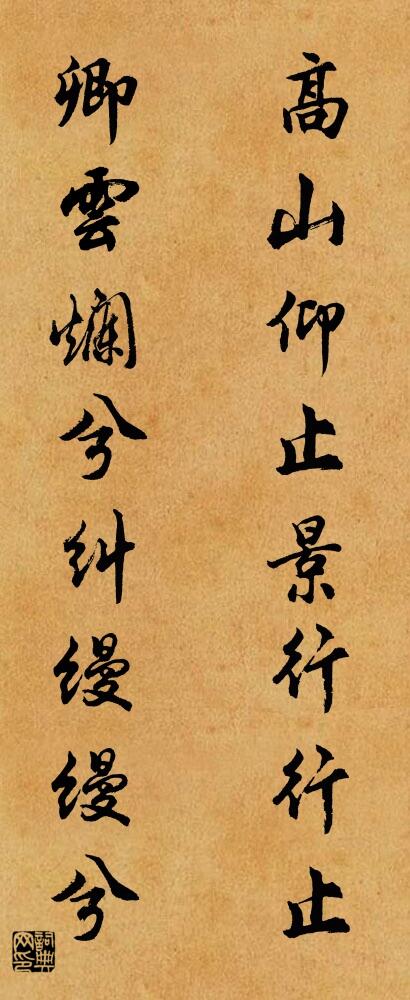 高山仰止景行行止
卿雲爛兮糾縵縵兮
詞典網印